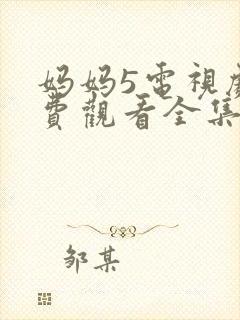 妈妈5電視劇
費觀看全集
邹某